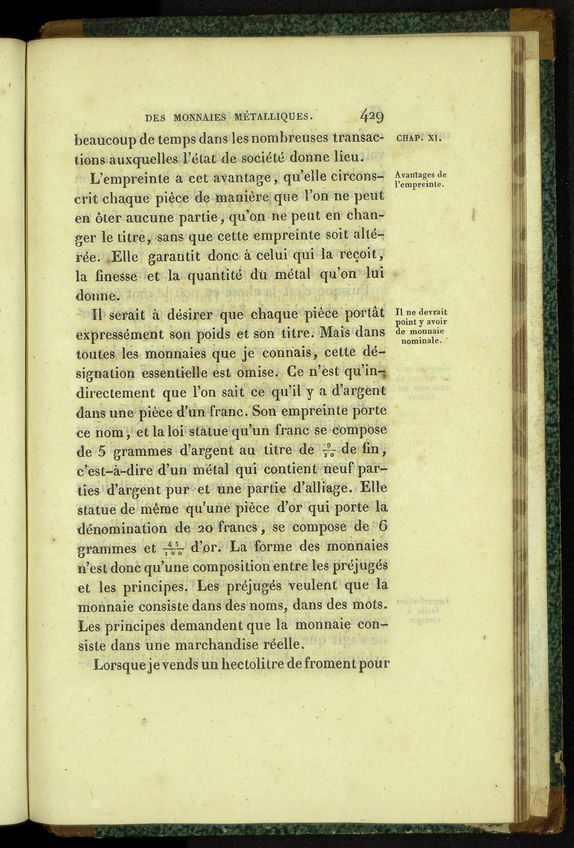 DES MONNAIES MÉTALLIQUES. 429
beaucoup de temps dans les nombreuses transac-
tions auxquelles l'état de société donne lieu.
L'empreinte a cet avantage, qu'elle circons-
crit chaque pièce de manière que l'on ne peut
en ôter aucune partie, qu'on ne peut en chan-
ger le titre, sans que cette empreinte soit alté-
rée. Elle garantit donc à celui qui la reçoit,
la finesse et la quantité du métal qu'on lui
donne.
Il serait à désirer que chaque pièce portât
expressément son poids et son titre. Mais dans
toutes les monnaies que je connais, cette dé-
signation essentielle est omise. Ce n'est qu'in-
directement que l'on sait ce qu'il y a d'argent
dans une pièce d'un franc. Son empreinte porte
ce nom, et la loi statue qu'un franc se compose
de 5 grammes d'argent au titre de 9/10 de fin,
c'est-à-dire d'un métal qui contient neuf par-
ties d'argent pur et une partie d'alliage. Elle
statue de même qu'une pièce d'or qui porte la
dénomination de 20 francs, se compose de 6
grammes et 45/100 d'or. La forme des monnaies
n'est donc qu'une composition entre les préjugés
et les principes. Les préjugés veulent que la
monnaie consiste dans des noms, dans des mots.
Les principes demandent que la monnaie con-
siste dans une marchandise réelle.
Lorsque je vends un hectolitre de froment pour
CHAP. XI.
Avantages de
l'empreinte.
Il ne devrait
point y avoir
de monnaie
nominale.